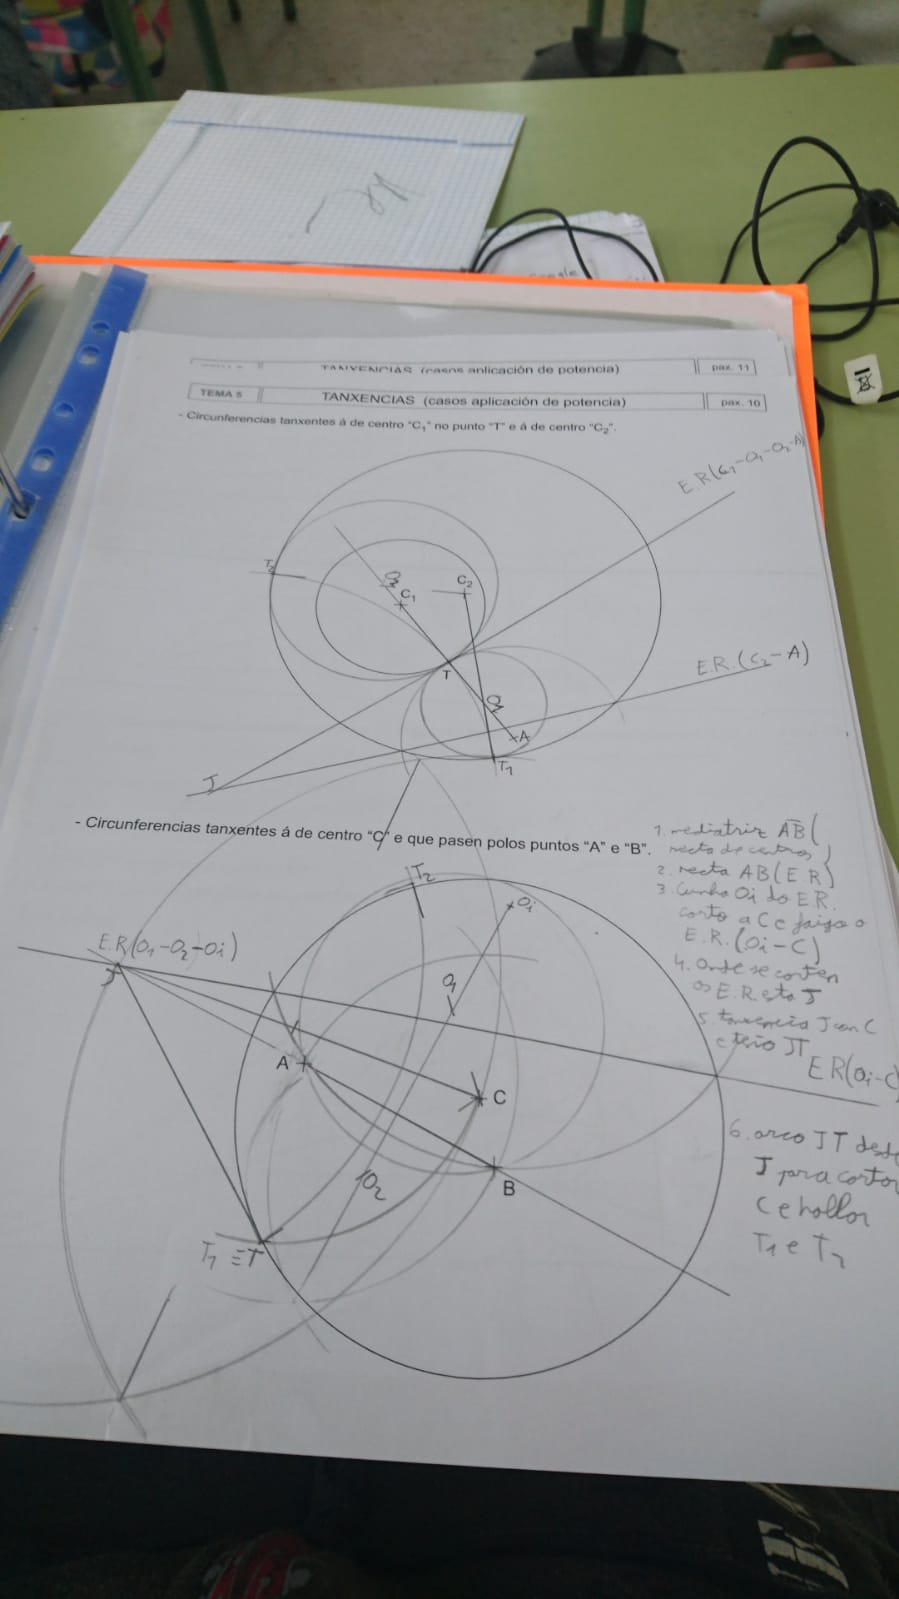 TANXENCIAS (casos aplicación de potencia) pax. 11
TEMA 5 TANXENCIAS (casos aplicación de potencia) pax. 10
- Circunferencias tanxentes á de centro "C₁" no punto "T" e á de centro "C₂".
E.R(C₁-O₁-O₂-A)
T₂
O₂
C₁
C₂
T
E.R.(C₂-A)
O₁
A
T₁
J
- Circunferencias tanxentes á de centro "C" e que pasen polos puntos "A" e "B".
1. mediatriz AB (
recta de centros)
2. recta AB (E.R)
3. Cunha Oi do E.R.
corto a C e faigo o
E.R. (Oi-C)
4. Onde se corten
os E.R. esta J
5. tanxencia J con C
e teño JT
6. arco JT desde
J para cortar
C e hallar
T₁ e T₂
T₂
Oi
E.R(O₁-O₂-Oi)
J
O₁
A
C
E R(Oi-C)
B
O₂
T₁ ≡ T